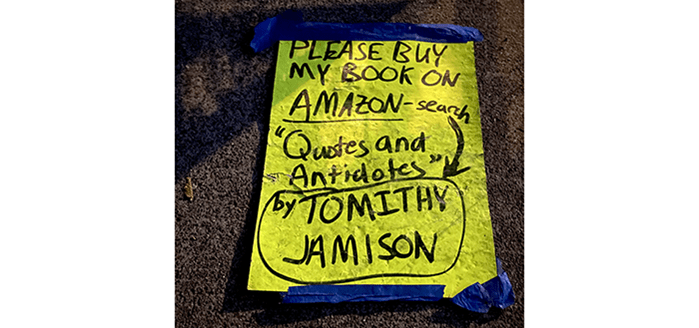 PLEASE BUY
MY BOOK ON
AMAZON-search
"Quotes and
Antidotes"
by TOMITHY
JAMISON